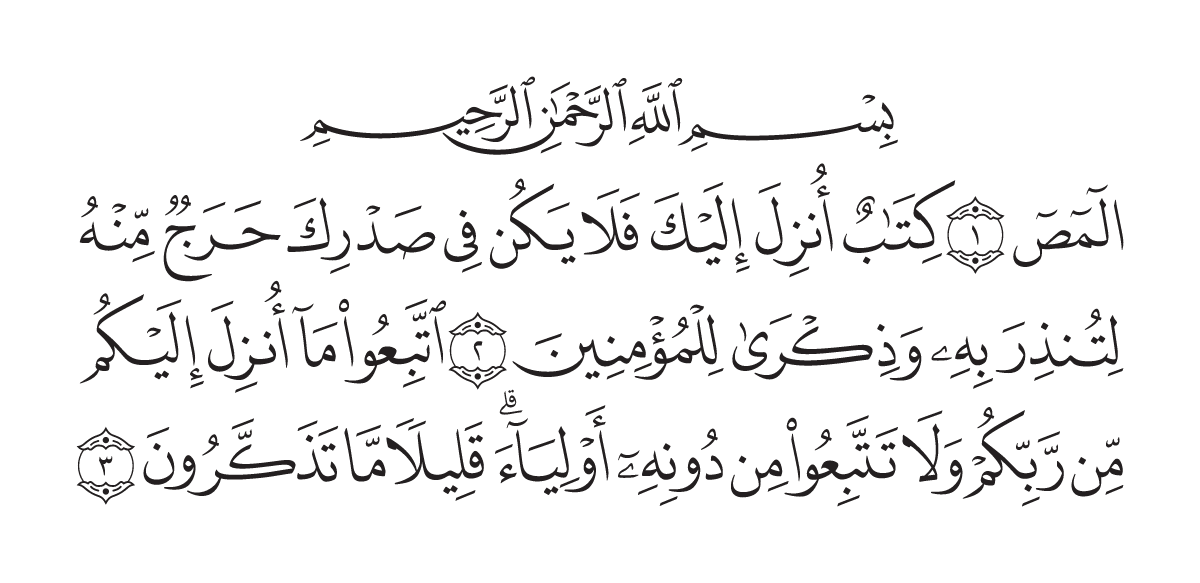 بِسْمِ ٱللَّهِ ٱلرَّحْمَٰنِ ٱلرَّحِيمِ
الٓمٓصٓ ١ كِتَٰبٌ أُنزِلَ إِلَيْكَ فَلَا يَكُن فِى صَدْرِكَ حَرَجٌ مِّنْهُ
لِتُنذِرَ بِهِۦ وَذِكْرَىٰ لِلْمُؤْمِنِينَ ٢ ٱتَّبِعُوا۟ مَآ أُنزِلَ إِلَيْكُم
مِّن رَّبِّكُمْ وَلَا تَتَّبِعُوا۟ مِن دُونِهِۦٓ أَوْلِيَآءَ ۗ قَلِيلًا مَّا تَذَكَّرُونَ ٣